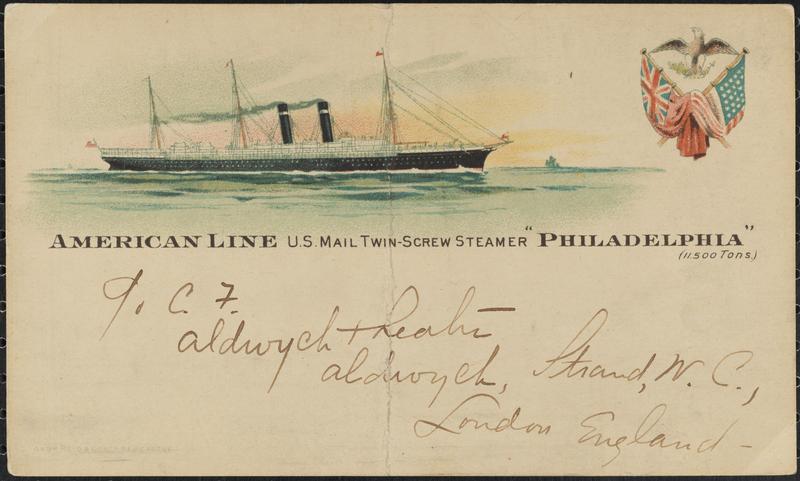 AMERICAN LINE U.S. MAIL TWIN-SCREW STEAMER "PHILADELPHIA"
(11.500 Tons.)
To C. F.
Aldwych Theatre
Aldwych, Strand, W. C.,
London England -